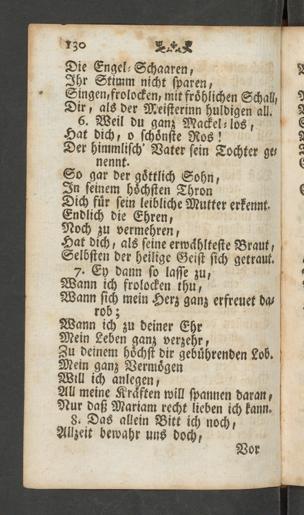 130
Die Engel-Schaaren,
Ihr Stimm nicht sparen,
Singen, frolocken, mit fröhlichen Schall,
Dir, als der Meisterinn huldigen all.
6. Weil du ganz Mackel-los,
Hat dich, o schönste Ros!
Der himmlisch' Vater sein Tochter ge-
nennt.
So gar der göttlich Sohn,
In seinem höchsten Thron
Dich für sein leibliche Mutter erkennt.
Endlich die Ehren,
Noch zu vermehren,
Hat dich, als seine erwählteste Braut,
Selbsten der heilige Geist sich getraut.
7. Ey dann so lasse zu,
Wann ich frolocken thu,
Wann sich mein Herz ganz erfreuet da-
rob;
Wann ich zu deiner Ehr
Mein Leben ganz verzehr,
Zu deinem höchst dir gebührenden Lob.
Mein ganz Vermögen
Will ich anlegen,
All meine Kräften will spannen daran,
Nur daß Mariam recht lieben ich kann.
8. Das allein Bitt ich noch,
Allzeit bewahr uns doch,
Vor